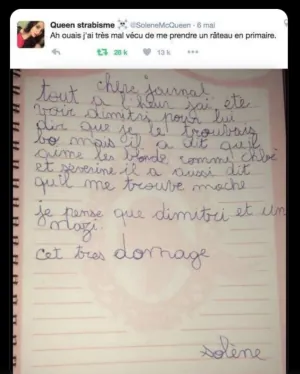 Queen strabisme ☠ @SoleneMcQueen · 6 mai
Ah ouais j'ai très mal vécu de me prendre un râteau en primaire.
28 k 13 k
chère journal
tout a l'heur jai ete
voir dimitri pour lui
dir que je le trouvais
bo mais il a dit qu'il
aime les blonde comme chloé
et severine il a aussi dit
qu'il me trouve moche
je pense que dimitri et un
nazi
cet tres domage
solène